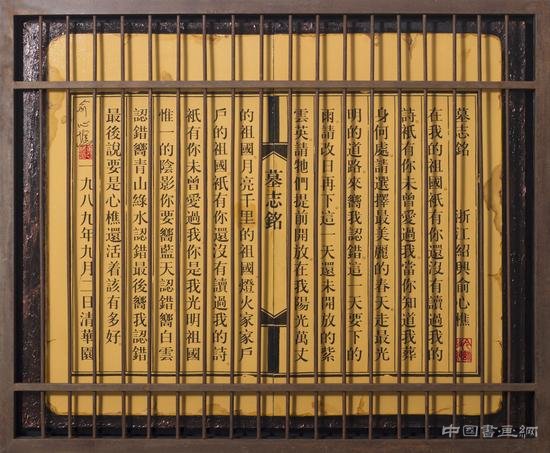 墓志銘 浙江紹興俞心樵
在我的祖國祇有你還没有讀過我的
詩祇有你未曾愛過我當你知道我葬
身何處請選擇最美麗的春天走最光
明的道路來嚮我認錯這一天要下的
雨請改日再下這一天還未開放的紫
雲英請牠們提前開放在我陽光萬丈
墓志銘
的祖國月亮千里的祖國燈火家家户
户的祖國祇有你還没有讀過我的詩
祇有你未曾愛過我你是我光明祖國
惟一的陰影你要嚮藍天認錯嚮白雲
認錯嚮青山綠水認錯最後嚮我認錯
最後說要是心樵還活着該有多好
九八九年九月二日清華園
俞心樵
中国書画網